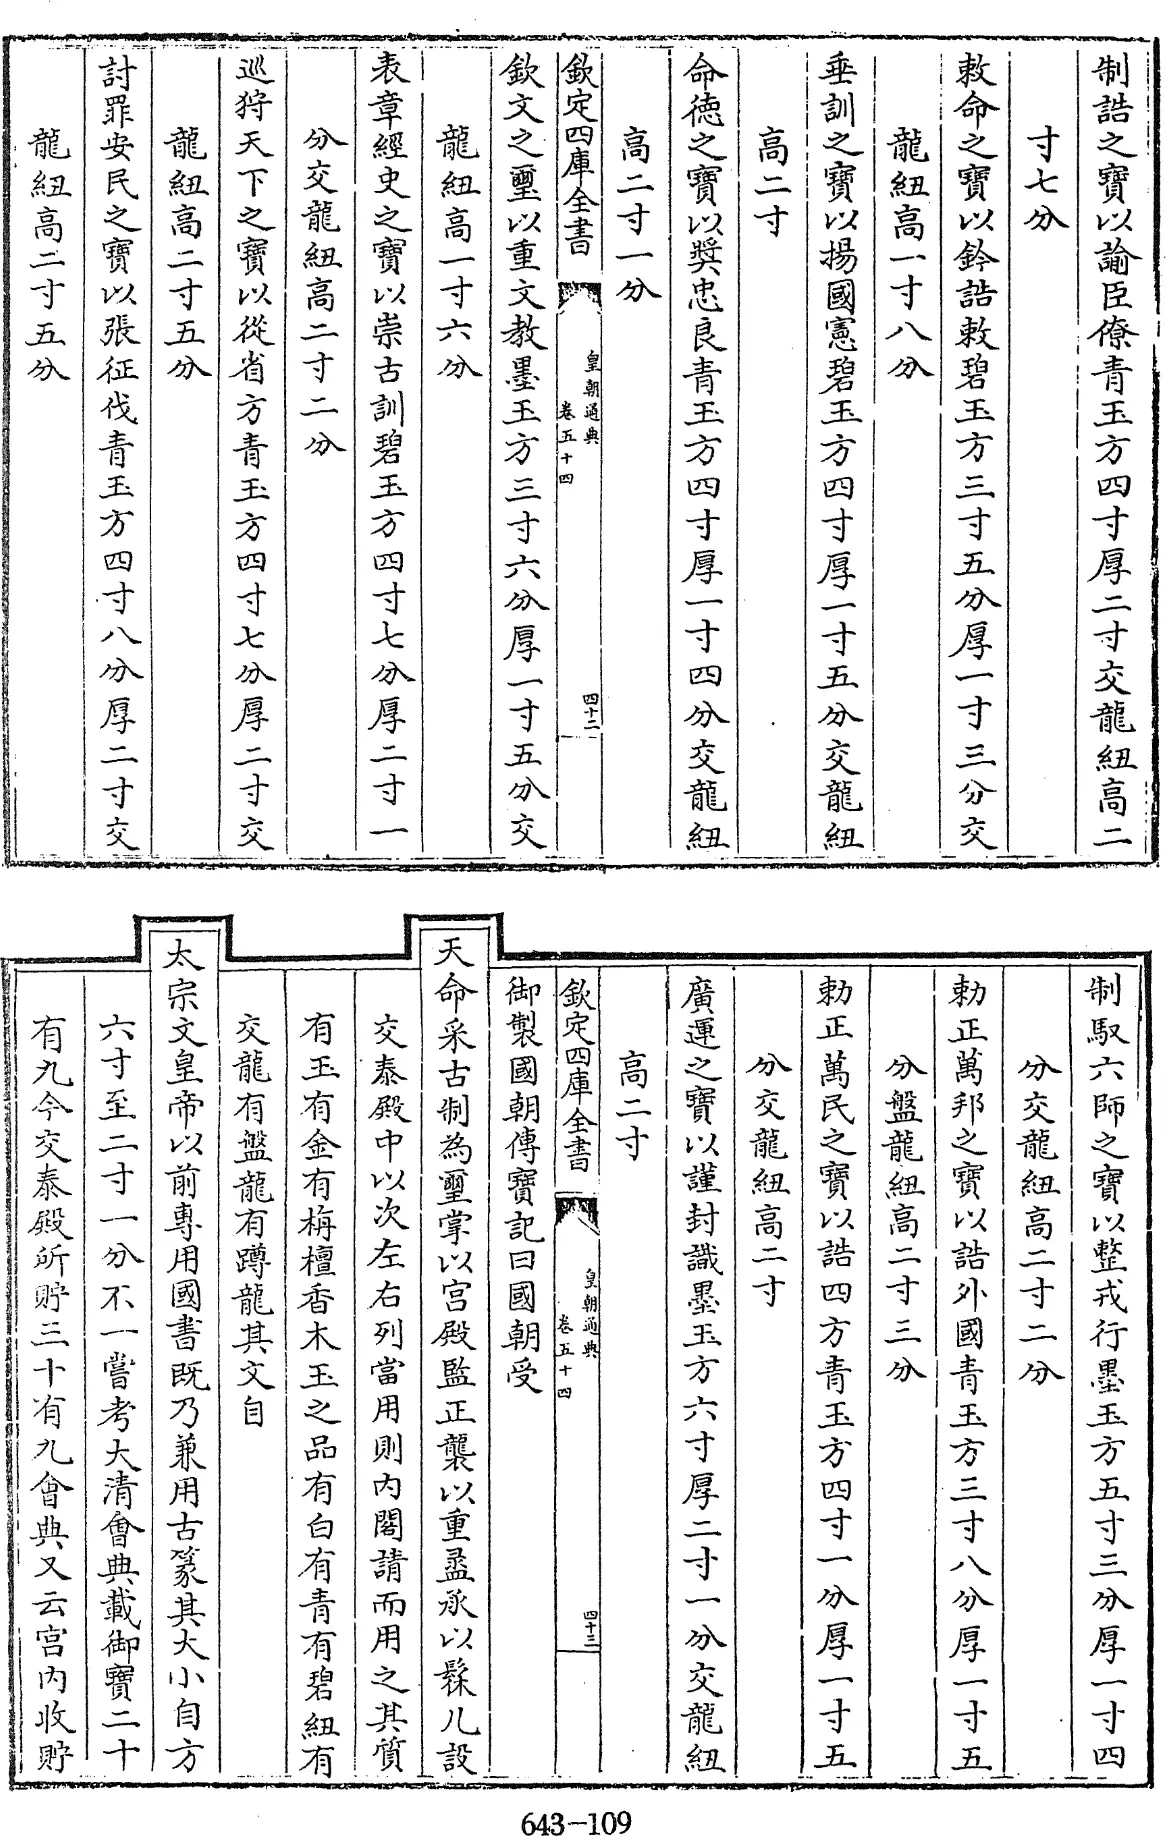 制誥之寶以諭臣僚青玉方四寸厚二寸交龍紐高二
寸七分
敕命之寶以鈐誥敕碧玉方三寸五分厚一寸三分交
龍紐高一寸八分
垂訓之寶以揚國憲碧玉方四寸厚一寸五分交龍紐
高二寸
命德之寶以獎忠良青玉方四寸厚一寸四分交龍紐
高二寸一分
欽定四庫全書
皇朝通典
卷五十四
四十二
欽文之璽以重文教墨玉方三寸六分厚一寸五分交
龍紐高一寸六分
表章經史之寶以崇古訓碧玉方四寸七分厚二寸一
分交龍紐高二寸二分
巡狩天下之寶以從省方青玉方四寸七分厚二寸交
龍紐高二寸五分
討罪安民之寶以張征伐青玉方四寸八分厚二寸交
龍紐高二寸五分
制馭六師之寶以整戎行墨玉方五寸三分厚一寸四
分交龍紐高二寸二分
勅正萬邦之寶以誥外國青玉方三寸八分厚一寸五
分盤龍紐高二寸三分
勅正萬民之寶以誥四方青玉方四寸一分厚一寸五
分交龍紐高二寸
廣運之寶以謹封識墨玉方六寸厚二寸一分交龍紐
高二寸
欽定四庫全書
皇朝通典
卷五十四
四十三
御製國朝傳寶記曰國朝受
天命采古制為璽掌以宮殿監正襲以重盝承以髹几設
交泰殿中以次左右列當用則内閣請而用之其質
有玉有金有栴檀香木玉之品有白有青有碧紐有
交龍有盤龍有蹲龍其文自
太宗文皇帝以前專用國書既乃兼用古篆其大小自方
六寸至二寸一分不一嘗考大清會典載御寶二十
有九今交泰殿所貯三十有九會典又云宮内收貯
643-109